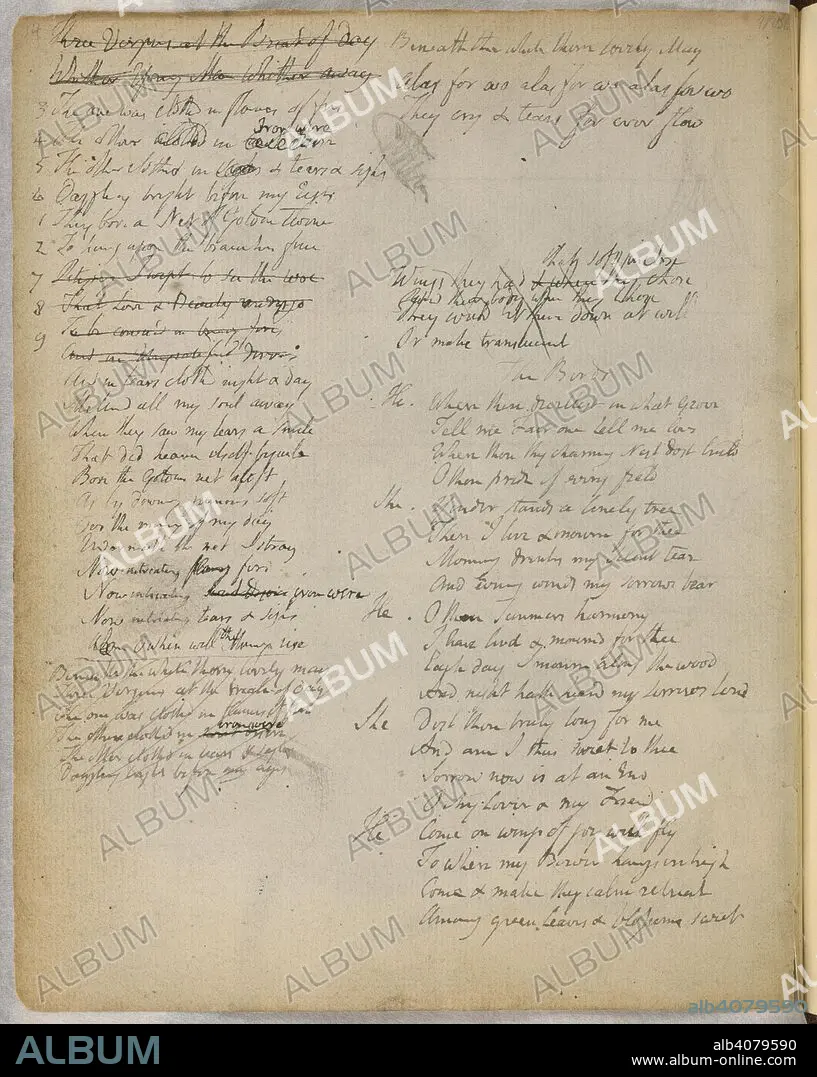 Three Virgins at the Break of day
Whither Young Man whither away
3 The one was clothd in flames of fire
4 The other clothd in Iron wire
5 The other clothd in tears & sighs
6 Dazzling bright before my Eyes
1 They bore a Net of Golden twine
2 To hang upon the branches fine
7 Pitying I wept to see the woe
8 That Love & Beauty undergo
9 To be consumd in burning fires
And in ungratified desires
And in tears clothd night & day
Melted all my soul away
When they saw my tears a smile
That did heaven itself beguile
Bore the Golden net aloft
As by downy pinions soft
Oer the morning of my day
Underneath the net I stray
Now intreating flaming fire
Now intreating iron wire
Now intreating tears & sighs
O when will the morning rise
Beneath the white thorn lovely may
Three Virgins at the break of day
The one was clothd in flames of fire
The other clothd in iron wire
The other clothd in tears & sighs
Dazzling bright before my eyes
Beneath the white thorn lovely May
Alas for wo alas for wo alas for wo
They cry & tears for ever flow
Wings they had & when they chose
They would let them down at will
Or make translucent
The Birds
He . Where thou dwellest in what Grove
Tell me Fair one tell me love
Where thou thy charming Nest dost build
O thou pride of every field
She . Yonder stands a lonely tree
There I live & mourn for thee
Morning drinks my silent tear
And Evning winds my sorrows bear
He . O thou Summers harmony
I have livd & mournd for thee
Each day I mourn along the wood
And night hath heard my sorrows loud
She Dost thou truly long for me
And am I thus sweet to thee
Sorrow now is at an End
O My Lover & my Friend
He Come on wings of joy well fly
To where my Bower hangs on high
Come & make thy calm retreat
Among green leaves & blossoms sweet
ALBUM
alb4079590
ALBUM
alb4079590
www.album-online.com